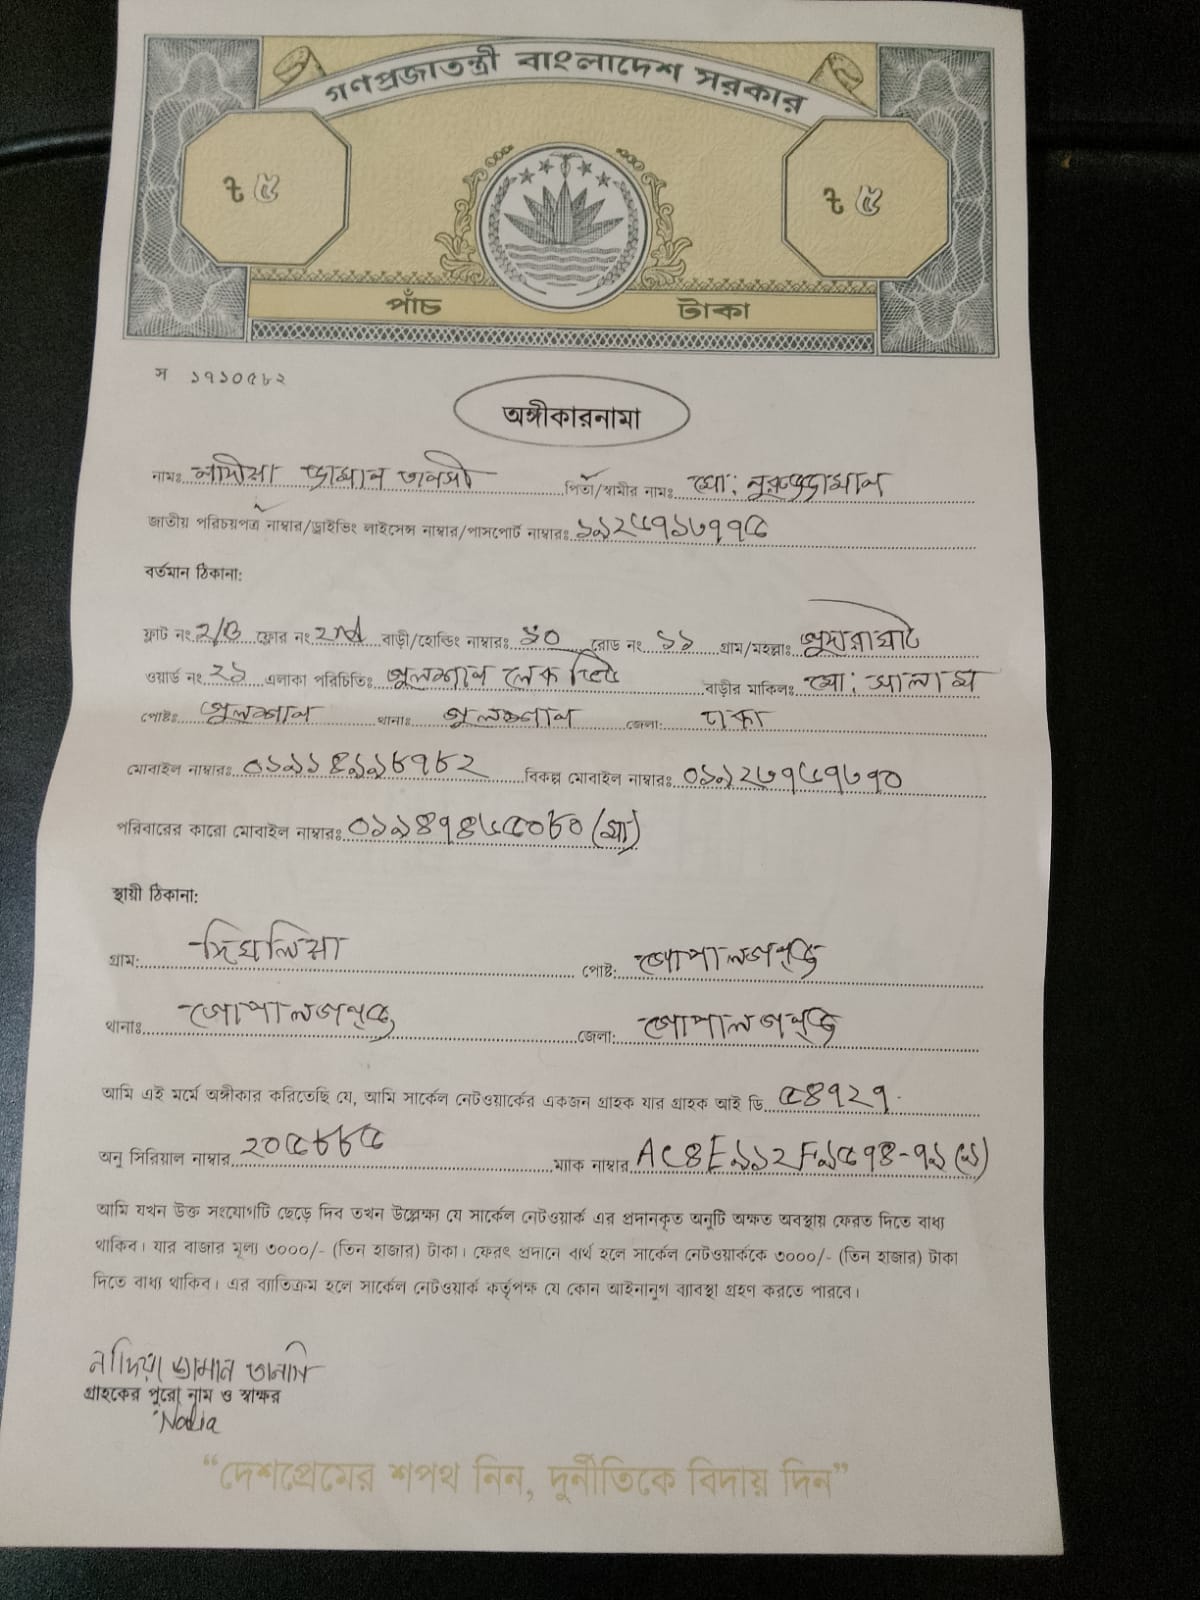 গণপ্রজাতন্ত্রী বাংলাদেশ সরকার
৳ ৫ ৳ ৫
পাঁচ টাকা
স ১৭১০৫৮২
অঙ্গীকারনামা
নামঃ নাদীয়া জামান তানসী পিতা/স্বামীর নামঃ মো: নুরুজ্জামান
জাতীয় পরিচয়পত্র নাম্বার/ড্রাইভিং লাইসেন্স নাম্বার/পাসপোর্ট নাম্বারঃ
বর্তমান ঠিকানা:
ফ্লাট নং 2/B ফ্লোর নং 2nd বাড়ী/হোল্ডিং নাম্বারঃ রোড নং ১১ গ্রাম/মহল্লাঃ
ওয়ার্ড নং ২১ এলাকা পরিচিতিঃ গুলশান লেক সিটি বাড়ীর মাকিলঃ মো: সালাম
পোষ্টঃ গুলশান থানাঃ গুলশান জেলা: ঢাকা
মোবাইল নাম্বারঃ বিকল্প মোবাইল নাম্বারঃ
পরিবারের কারো মোবাইল নাম্বারঃ (মা)
স্থায়ী ঠিকানা:
গ্রাম: দিঘলিয়া পোষ্ট: গোপালগঞ্জ
থানাঃ গোপালগঞ্জ জেলা: গোপালগঞ্জ
আমি এই মর্মে অঙ্গীকার করিতেছি যে, আমি সার্কেল নেটওয়ার্কের একজন গ্রাহক যার গ্রাহক আই ডি ৫৪৭২৭
অনু সিরিয়াল নাম্বার ২০৫৮৮৫ ম্যাক নাম্বার
আমি যখন উক্ত সংযোগটি ছেড়ে দিব তখন উল্লেক্ষ্য যে সার্কেল নেটওয়ার্ক এর প্রদানকৃত অনুটি অক্ষত অবস্থায় ফেরত দিতে বাধ্য
থাকিব। যার বাজার মূল্য ৩০০০/- (তিন হাজার) টাকা। ফেরৎ প্রদানে ব্যর্থ হলে সার্কেল নেটওয়ার্ককে ৩০০০/- (তিন হাজার) টাকা
দিতে বাধ্য থাকিব। এর ব্যাতিক্রম হলে সার্কেল নেটওয়ার্ক কর্তৃপক্ষ যে কোন আইনানুগ ব্যাবস্থা গ্রহণ করতে পারবে।
নাদিয়া জামান তানসি
গ্রাহকের পুরো নাম ও স্বাক্ষর
Nadia
“দেশপ্রেমের শপথ নিন, দুর্নীতিকে বিদায় দিন”